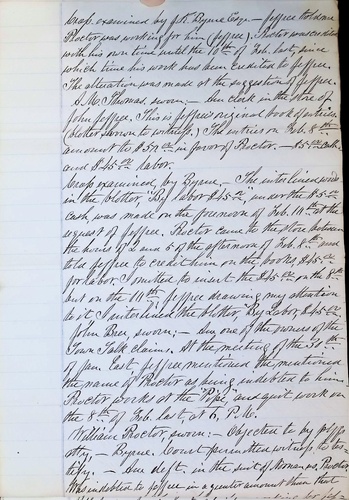 Cross examined by J. R. Byrne Esq. — Jeffree told me
Proctor was working for him (Jeffree). Proctor was credited
with his own time until the 10th of Feb. last, since
which time his work has been credited to Jeffree.
The alteration was made at the suggestion of Jeffree.
A. M. Thomas, sworn; — Am clerk in the store of
John Jeffree. This is Jeffree's original book of entries
(blotter shown to witness.) The entries on Feb. 8th
amount to $50 in favor of Proctor. — $5 cash
and $45 labor.
Cross examined, by Byrne. — The interlined words
in the blotter, "By labor $45", under the $5
cash, was made on the forenoon of Feb. 11th at the
request of Jeffree. Proctor came to the store between
the hours of 2 and 5 of the afternoon of Feb. 8th and
told Jeffree to credit him on the books $45
for labor. I omitted to insert the $45 on the 8th
but on the 11th Jeffree drawing my attention
to it I interlined the blotter, By Labor $45
John Bree, sworn; — Am one of the owners of the
Town Talk claims. At the meeting of the 31st
of Jan. last, Jeffree mentioned the mentioned
the name of Proctor as being indebted to him.
Proctor works at the "Pipe", and quit work on
the 8th of Feb. last, at 6, P. M.
William Proctor, sworn: — Objected to by plff's
atty, — Byrne. Court permitted witness to tes-
tify. — Am deft. in the suit of vs. Proctor
Was indebted to Jeffree in a greater amount than that